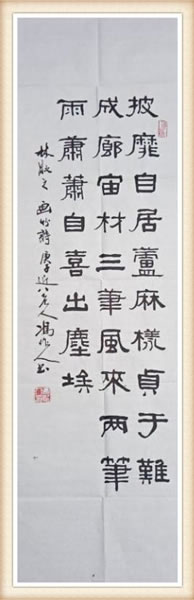 披靡自居蘆麻樣貞于難
成廊宙材三筆風來兩筆
雨蕭蕭自喜出塵埃
林散之画竹詩庚子近八老人馮作人书